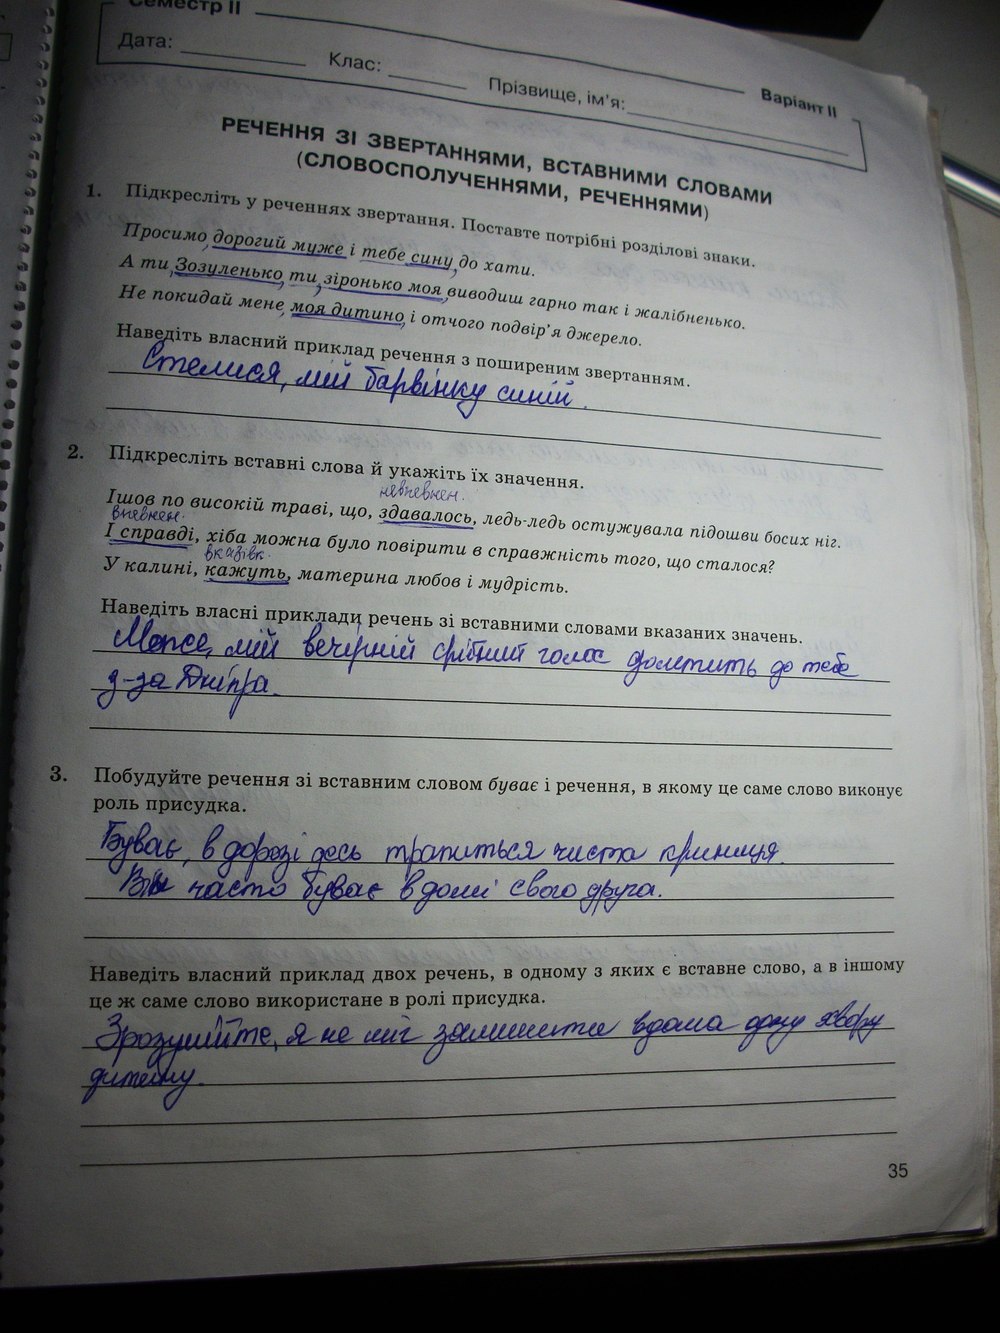 Семестр II
Дата: Клас: Прізвище, ім'я: Варіант II
РЕЧЕННЯ ЗІ ЗВЕРТАННЯМИ, ВСТАВНИМИ СЛОВАМИ
(СЛОВОСПОЛУЧЕННЯМИ, РЕЧЕННЯМИ)
1. Підкресліть у реченнях звертання. Поставте потрібні розділові знаки.
Просимо, дорогий муже і тебе сину, до хати.
А ти, Зозуленько, ти, зіронько моя, виводиш гарно так і жалібненько.
Не покидай мене, моя дитино, і отчого подвір'я джерело.
Наведіть власний приклад речення з поширеним звертанням.
Стелися, мій барвінку синій.
2. Підкресліть вставні слова й укажіть їх значення.
невпевнен.
Ішов по високій траві, що, здавалось, ледь-ледь остужувала підошви босих ніг.
впевнен.
І справді, хіба можна було повірити в справжність того, що сталося?
вказівк.
У калині, кажуть, материна любов і мудрість.
Наведіть власні приклади речень зі вставними словами вказаних значень.
Може, мій вечірній срібний голос долетить до тебе
з-за Дніпра.
3. Побудуйте речення зі вставним словом буває і речення, в якому це саме слово виконує
роль присудка.
Буває, в дорозі десь трапиться чиста криниця.
Він часто буває в домі свого друга.
Наведіть власний приклад двох речень, в одному з яких є вставне слово, а в іншому
це ж саме слово використане в ролі присудка.
Зрозумійте, я не міг залишити вдома одну хвору
дитину.
35